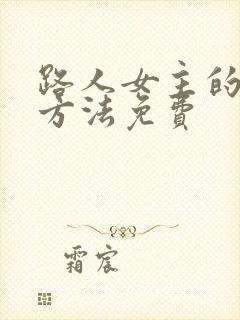 路人女主的
方法免費
霜宸